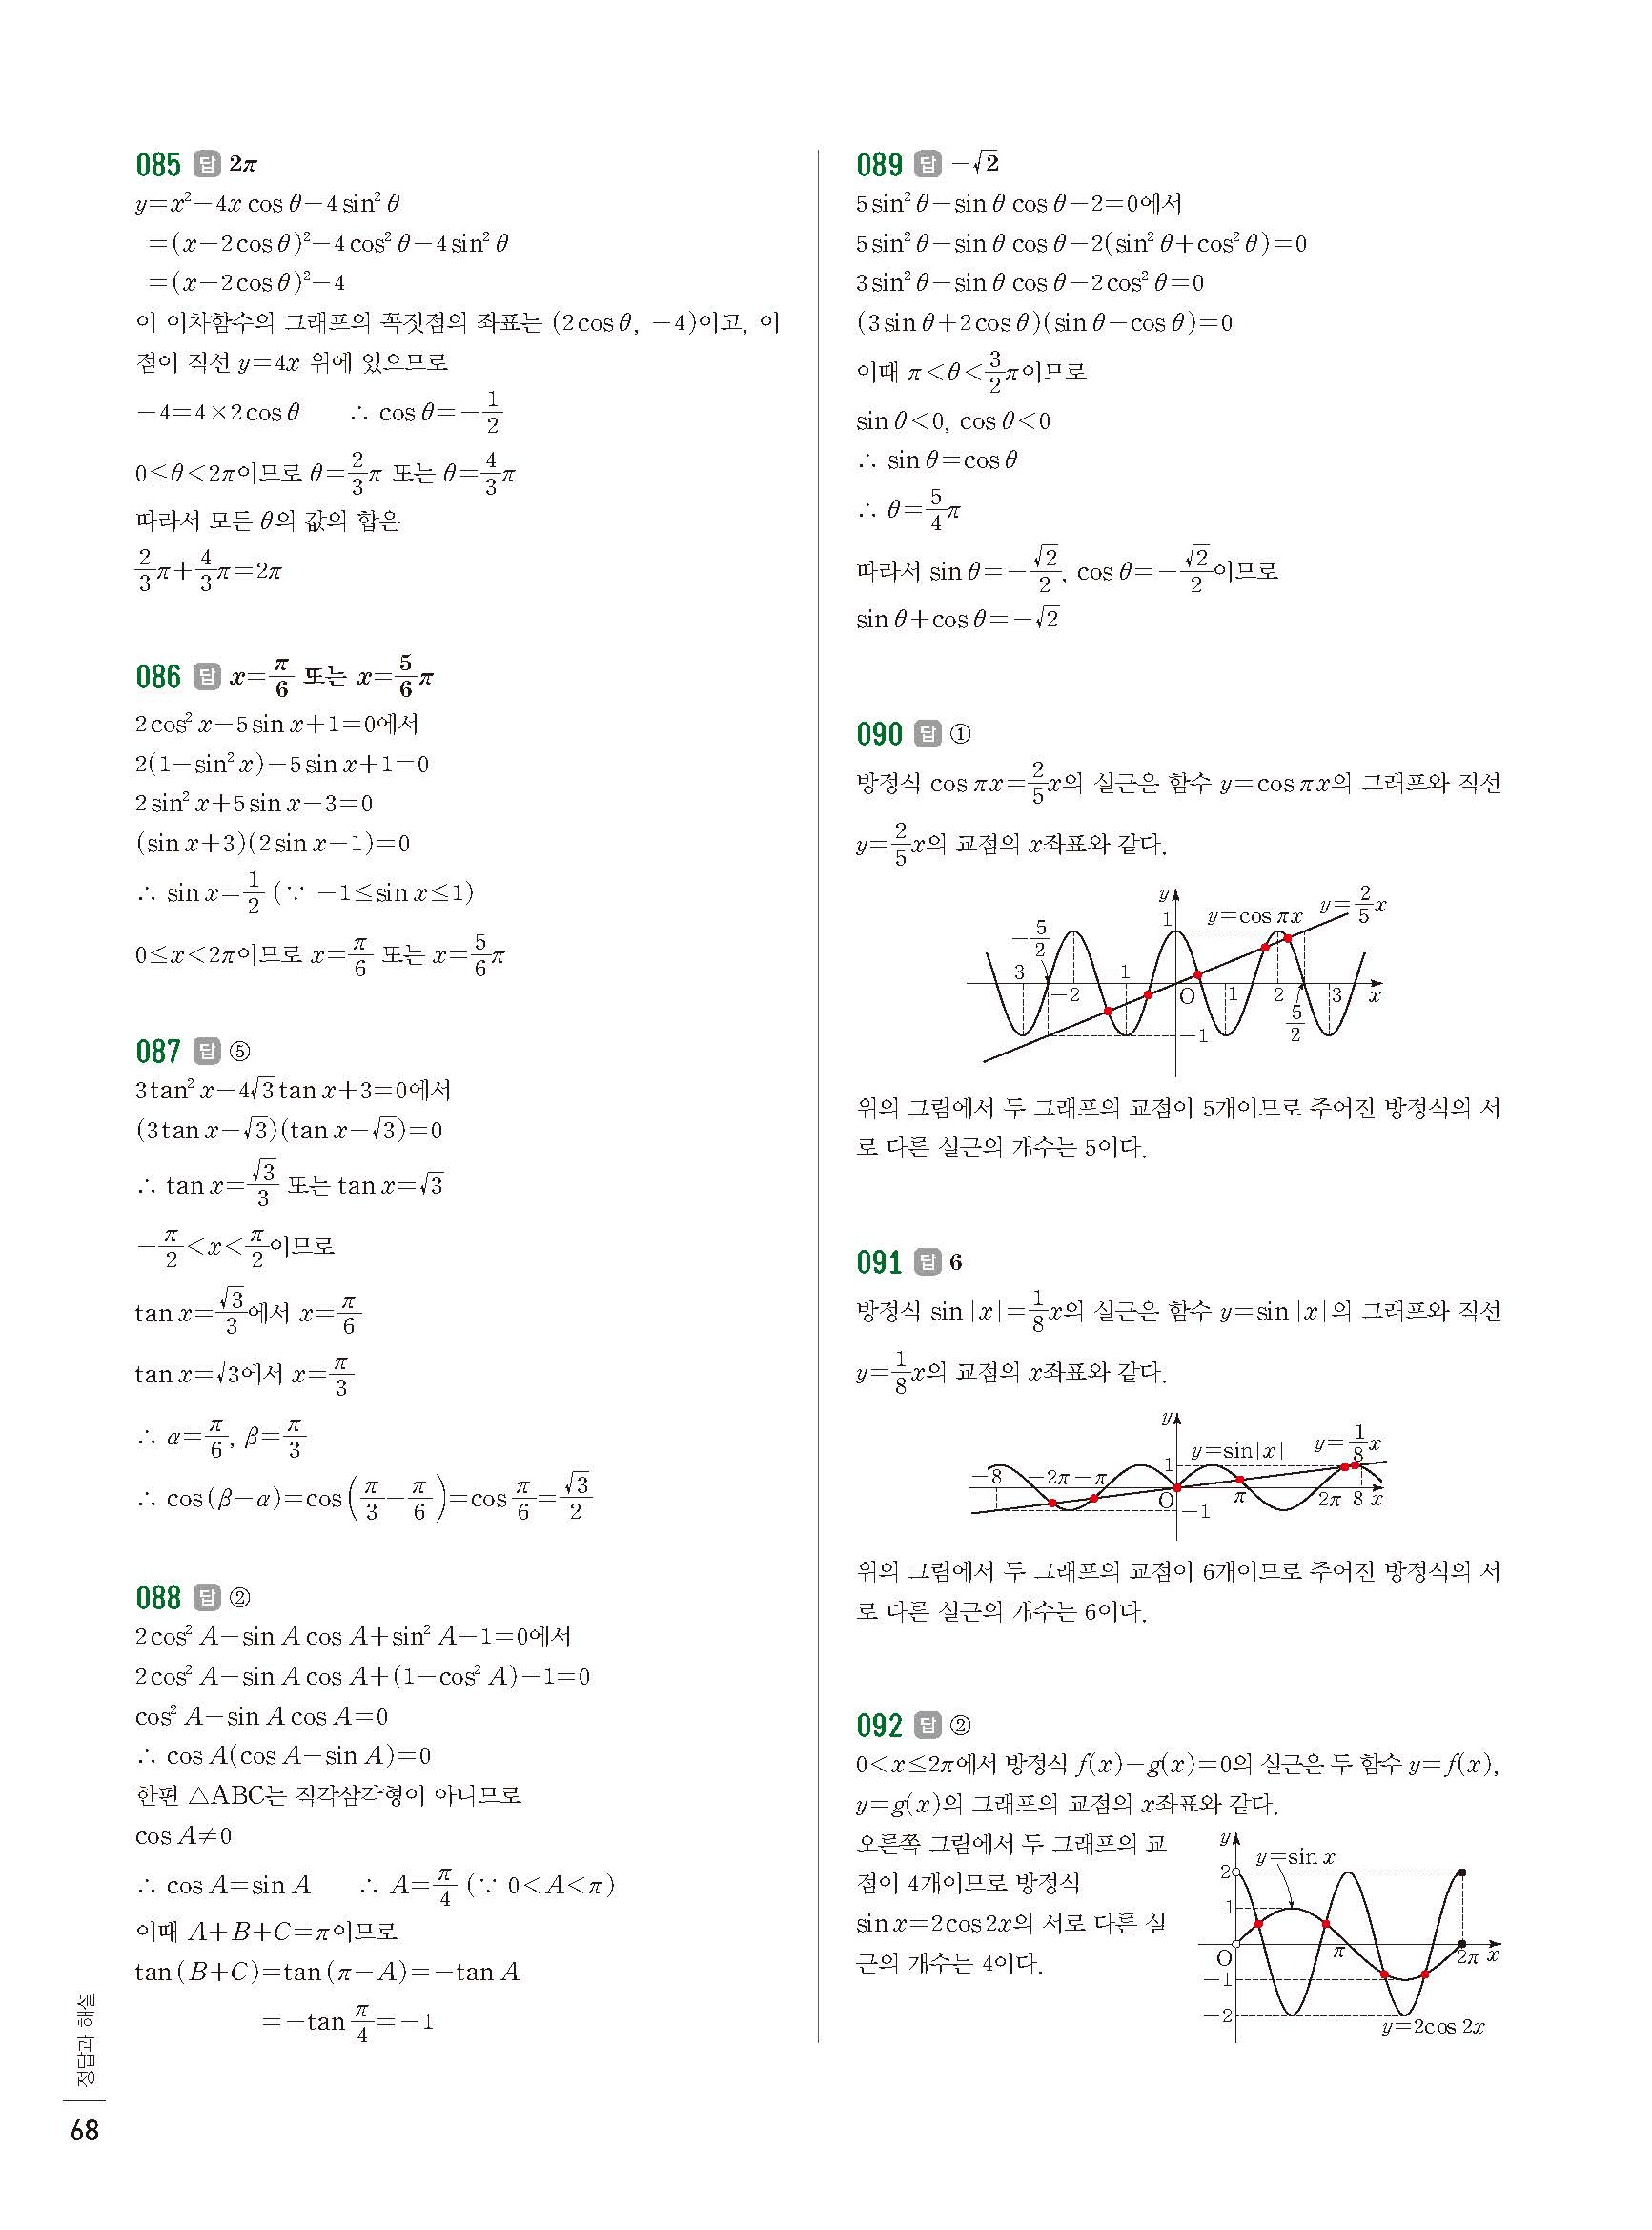 085 답 2π
y=x²−4x cos θ−4 sin² θ
=(x−2 cos θ)²−4 cos² θ−4 sin² θ
=(x−2 cos θ)²−4
이 이차함수의 그래프의 꼭짓점의 좌표는 (2 cos θ, −4)이고, 이
점이 직선 y=4x 위에 있으므로
−4=4×2 cos θ ∴ cos θ=−1/2
0≤θ<2π이므로 θ=2/3π 또는 θ=4/3π
따라서 모든 θ의 값의 합은
2/3π+4/3π=2π
086 답 x=π/6 또는 x=5/6π
2 cos² x−5 sin x+1=0에서
2(1−sin² x)−5 sin x+1=0
2 sin² x+5 sin x−3=0
(sin x+3)(2 sin x−1)=0
∴ sin x=1/2 (∵ −1≤sin x≤1)
0≤x<2π이므로 x=π/6 또는 x=5/6π
087 답 ⑤
3 tan² x−4√3 tan x+3=0에서
(3 tan x−√3)(tan x−√3)=0
∴ tan x=√3/3 또는 tan x=√3
−π/2<x<π/2이므로
tan x=√3/3에서 x=π/6
tan x=√3에서 x=π/3
∴ α=π/6, β=π/3
∴ cos (β−α)=cos(π/3−π/6)=cos π/6=√3/2
088 답 ②
2 cos² A−sin A cos A+sin² A−1=0에서
2 cos² A−sin A cos A+(1−cos² A)−1=0
cos² A−sin A cos A=0
∴ cos A(cos A−sin A)=0
한편 △ABC는 직각삼각형이 아니므로
cos A≠0
∴ cos A=sin A ∴ A=π/4 (∵ 0<A<π)
이때 A+B+C=π이므로
tan (B+C)=tan (π−A)=−tan A
=−tan π/4=−1
089 답 −√2
5 sin² θ−sin θ cos θ−2=0에서
5 sin² θ−sin θ cos θ−2(sin² θ+cos² θ)=0
3 sin² θ−sin θ cos θ−2 cos² θ=0
(3 sin θ+2 cos θ)(sin θ−cos θ)=0
이때 π<θ<3/2π이므로
sin θ<0, cos θ<0
∴ sin θ=cos θ
∴ θ=5/4π
따라서 sin θ=−√2/2, cos θ=−√2/2이므로
sin θ+cos θ=−√2
090 답 ①
방정식 cos πx=2/5x의 실근은 함수 y=cos πx의 그래프와 직선
y=2/5x의 교점의 x좌표와 같다.
y
1
y=cos πx
y=2/5x
−5/2
−3
−2
−1
O
1
2
5/2
3
x
−1
위의 그림에서 두 그래프의 교점이 5개이므로 주어진 방정식의 서
로 다른 실근의 개수는 5이다.
091 답 6
방정식 sin |x|=1/8x의 실근은 함수 y=sin |x|의 그래프와 직선
y=1/8x의 교점의 x좌표와 같다.
y
y=sin|x|
y=1/8x
1
−8
−2π
−π
O
π
2π
8
x
−1
위의 그림에서 두 그래프의 교점이 6개이므로 주어진 방정식의 서
로 다른 실근의 개수는 6이다.
092 답 ②
0<x≤2π에서 방정식 f(x)−g(x)=0의 실근은 두 함수 y=f(x),
y=g(x)의 그래프의 교점의 x좌표와 같다.
오른쪽 그림에서 두 그래프의 교
점이 4개이므로 방정식
sin x=2 cos 2x의 서로 다른 실
근의 개수는 4이다.
y
y=sin x
2
1
O
π
2π
x
−1
−2
y=2cos 2x
정답과 해설
68